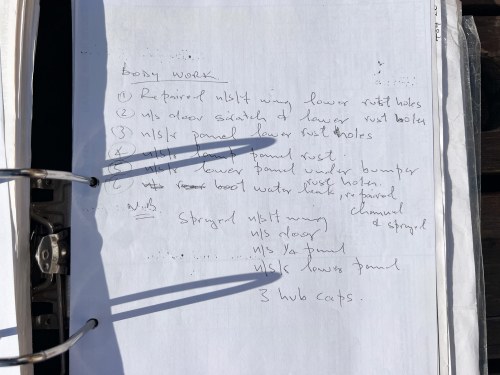 BODY WORK
① Repaired n/s/f wing lower rust holes
② n/s door scratch & lower rust holes
③ n/s/r panel lower rust holes
④ n/s/r panel rust
5 n/s/r lower panel under bumper
rust holes.
6 boot water leak, repaired
N.B
channel & sprayed
Sprayed n/s/f wing
n/s door
n/s 1/4 panel
n/s/r lower panel
3 hub caps.